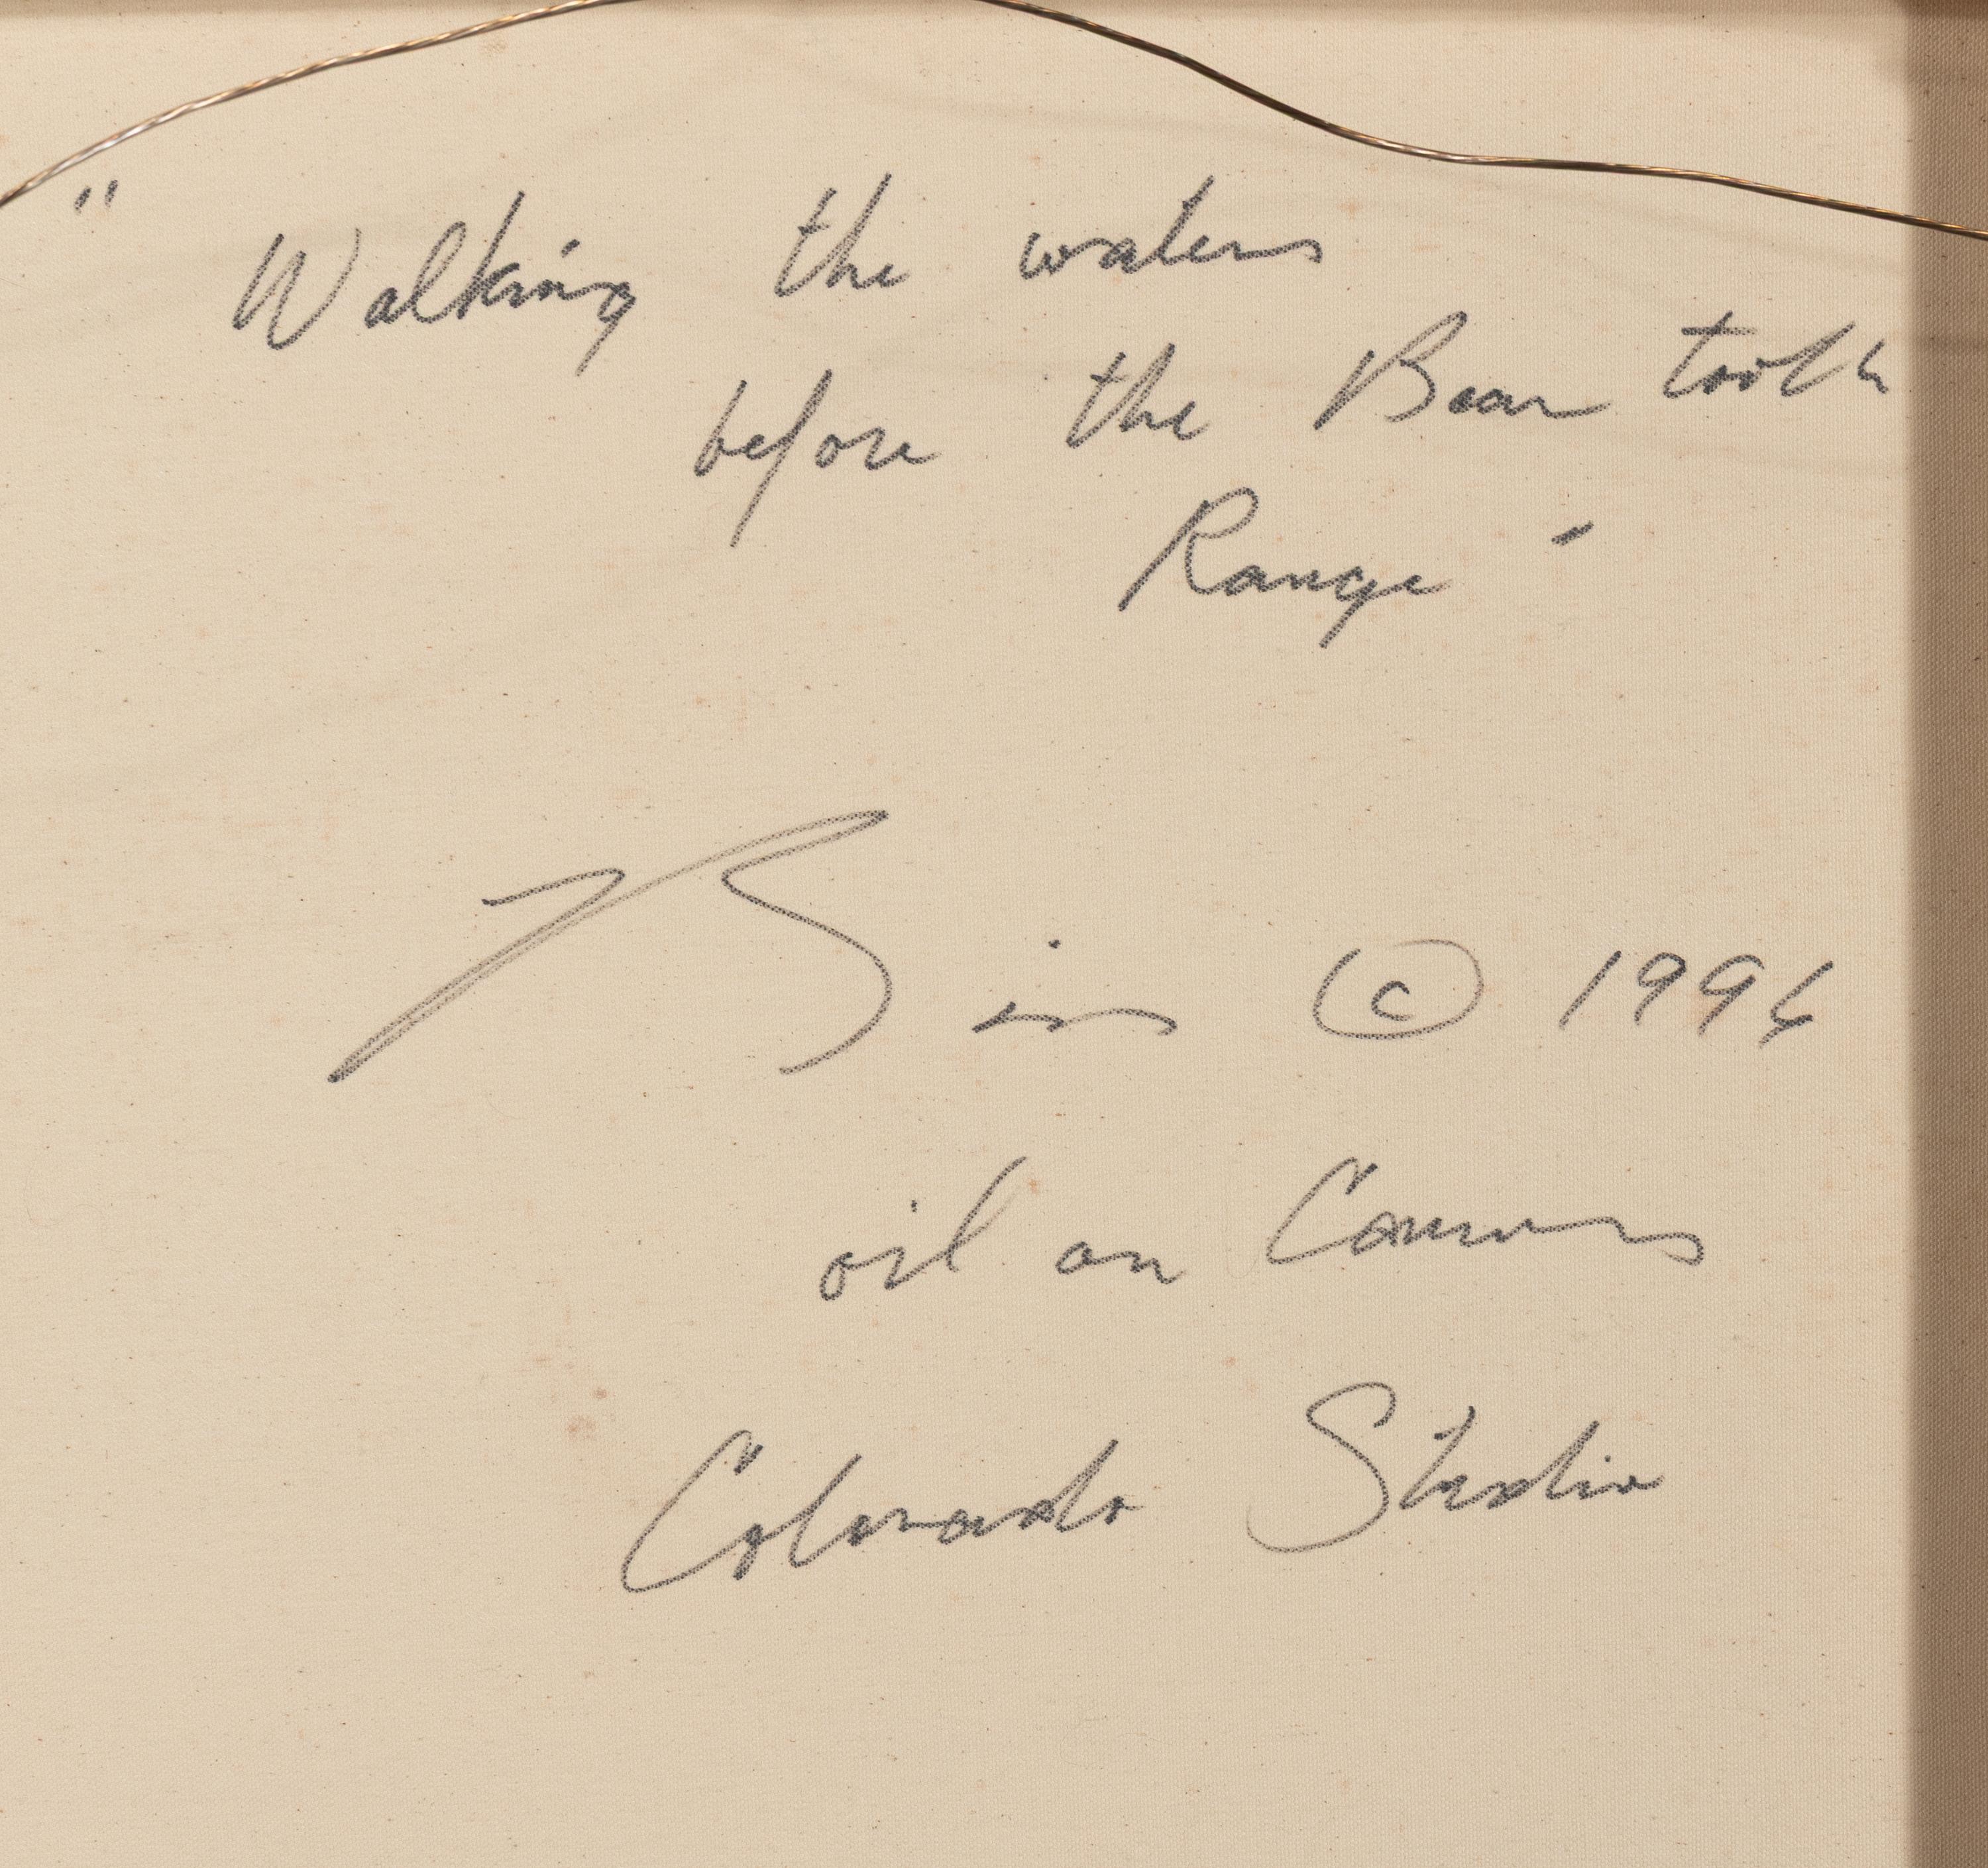 "Walking the waters
before the Bear tooth
Range"
© 1996
oil on Canvas
Colorado Studio